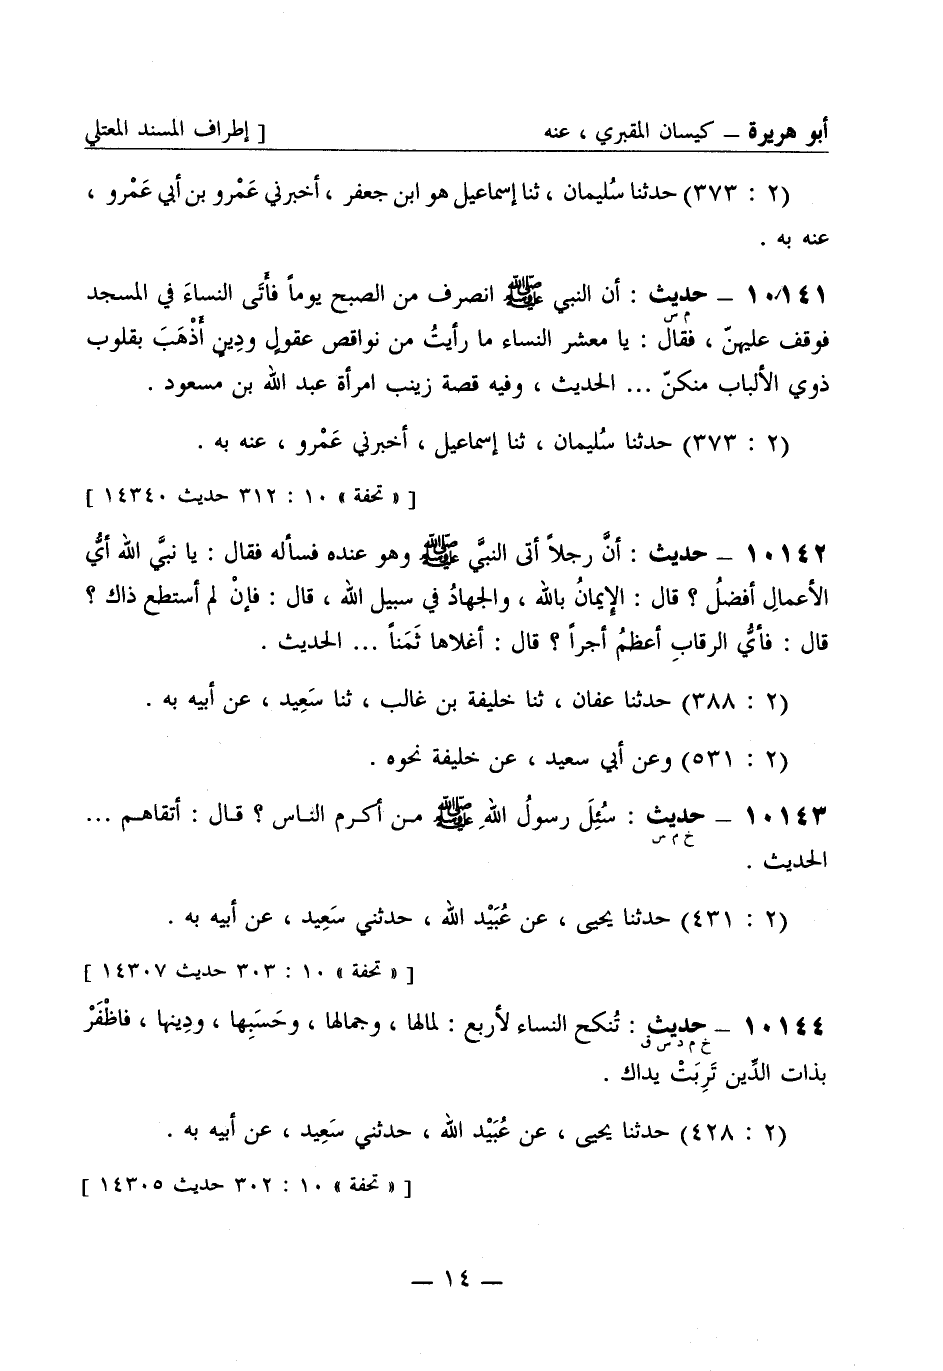 أبو هريرة ــ كيسان المقبري ، عنه [ إطراف المسند المعتلي
(٢ : ٣٧٣) حدثنا سُليمان ، ثنا إسماعيل هو ابن جعفر ، أخبرني عَمْرو بن أبي عَمْرو ،
عنه به .
١٠١٤١ ــ حديث : أن النبي ﷺ انصرف من الصبح يوماً فأَتَى النساءَ في المسجد
م س
فوقف عليهنّ ، فقال : يا معشر النساء ما رأيتُ من نواقص عقولٍ ودِينٍ أَذْهَبَ بقلوب
ذوي الألباب منكنّ ... الحديث ، وفيه قصة زينب امرأة عبد الله بن مسعود .
(٢ : ٣٧٣) حدثنا سُليمان ، ثنا إسماعيل ، أخبرني عَمْرو ، عنه به .
[ « تحفة » ١٠ : ٣١٢ حديث ١٤٣٤٠ ]
١٠١٤٢ ــ حديث : أنَّ رجلاً أتى النبيَّ ﷺ وهو عنده فسأله فقال : يا نبيَّ الله أيُّ
الأعمالِ أفضلُ ؟ قال : الإيمانُ بالله ، والجهادُ في سبيل الله ، قال : فإنْ لم أستطع ذاك ؟
قال : فأيُّ الرقابِ أعظمُ أجراً ؟ قال : أغلاها ثَمَناً ... الحديث .
(٢ : ٣٨٨) حدثنا عفان ، ثنا خليفة بن غالب ، ثنا سَعِيد ، عن أبيه به .
(٢ : ٥٣١) وعن أبي سعيد ، عن خليفة نحوه .
١٠١٤٣ ــ حديث : سُئِلَ رسولُ اللهِ ﷺ من أكرم الناس ؟ قال : أتقاهم ...
خ م س
الحديث .
(٢ : ٤٣١) حدثنا يحيى ، عن عُبَيْد الله ، حدثني سَعِيد ، عن أبيه به .
[ « تحفة » ١٠ : ٣٠٣ حديث ١٤٣٠٧ ]
١٠١٤٤ ــ حديث : تُنكح النساء لأربع : لمالها ، وجمالها ، وحَسَبِها ، ودِينها ، فاظْفَرْ
خ م د س ق
بذات الدِّين تَرِبَتْ يداك .
(٢ : ٤٢٨) حدثنا يحيى ، عن عُبَيْد الله ، حدثني سَعِيد ، عن أبيه به .
[ « تحفة » ١٠ : ٣٠٢ حديث ١٤٣٠٥ ]
ــ ١٤ ــ